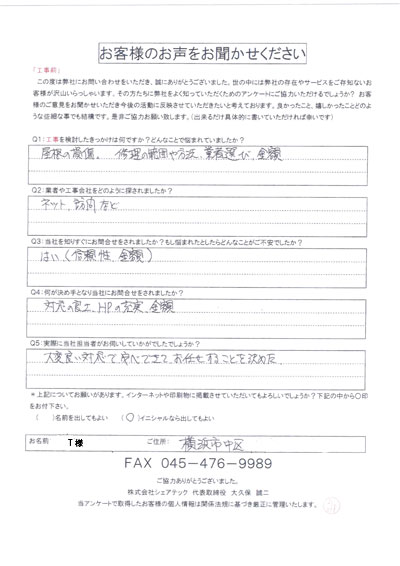 お客様のお声をお聞かせください
「工事前」
この度は弊社にお問い合わせをいただき、誠にありがとうございました。世の中には弊社の存在やサービスをご存知ないお
客様が沢山いらっしゃいます。その方たちに弊社をよく知っていただくためのアンケートにご協力いただけるでしょうか? お客
様のご意見をお聞かせいただき今後の活動に反映させていただきたいと考えております。良かったこと、嬉しかったことどのよ
うな些細な事でも結構です。是非ご協力お願い致します。(出来るだけ具体的に書いていただければ幸いです)
Q1:工事を検討したきっかけは何ですか?どんなことで悩まれていましたか?
屋根の損傷。 修理の範囲や方法、業者選び、金額
Q2:業者や工事会社をどのように探されましたか?
ネット、訪問など
Q3:当社を知りすぐにお問合せをされましたか?もし悩まれたとしたらどんなことがご不安でしたか?
はい(信頼性、金額)
Q4:何が決め手となり当社にお問合せをされましたか?
対応の良さ、HPの充実、金額
Q5:実際に当社担当者がお伺いしていかがでしたでしょうか?
大変良い対応で安心できて、お任せすることを決めた。
*上記についてお願いがあります。インターネットや印刷物に掲載させていただいてもよろしいでしょうか?下記の中から〇印
をお付下さい。
( )名前を出してもよい (〇)イニシャルなら出してもよい
お名前 T様 ご住所: 横浜市中区
FAX 045-476-9989
ご協力ありがとうございました。
株式会社シェアテック 代表取締役 大久保 誠二
当アンケートで取得したお客様の個人情報は関係法規に基づき厳正に管理いたします。